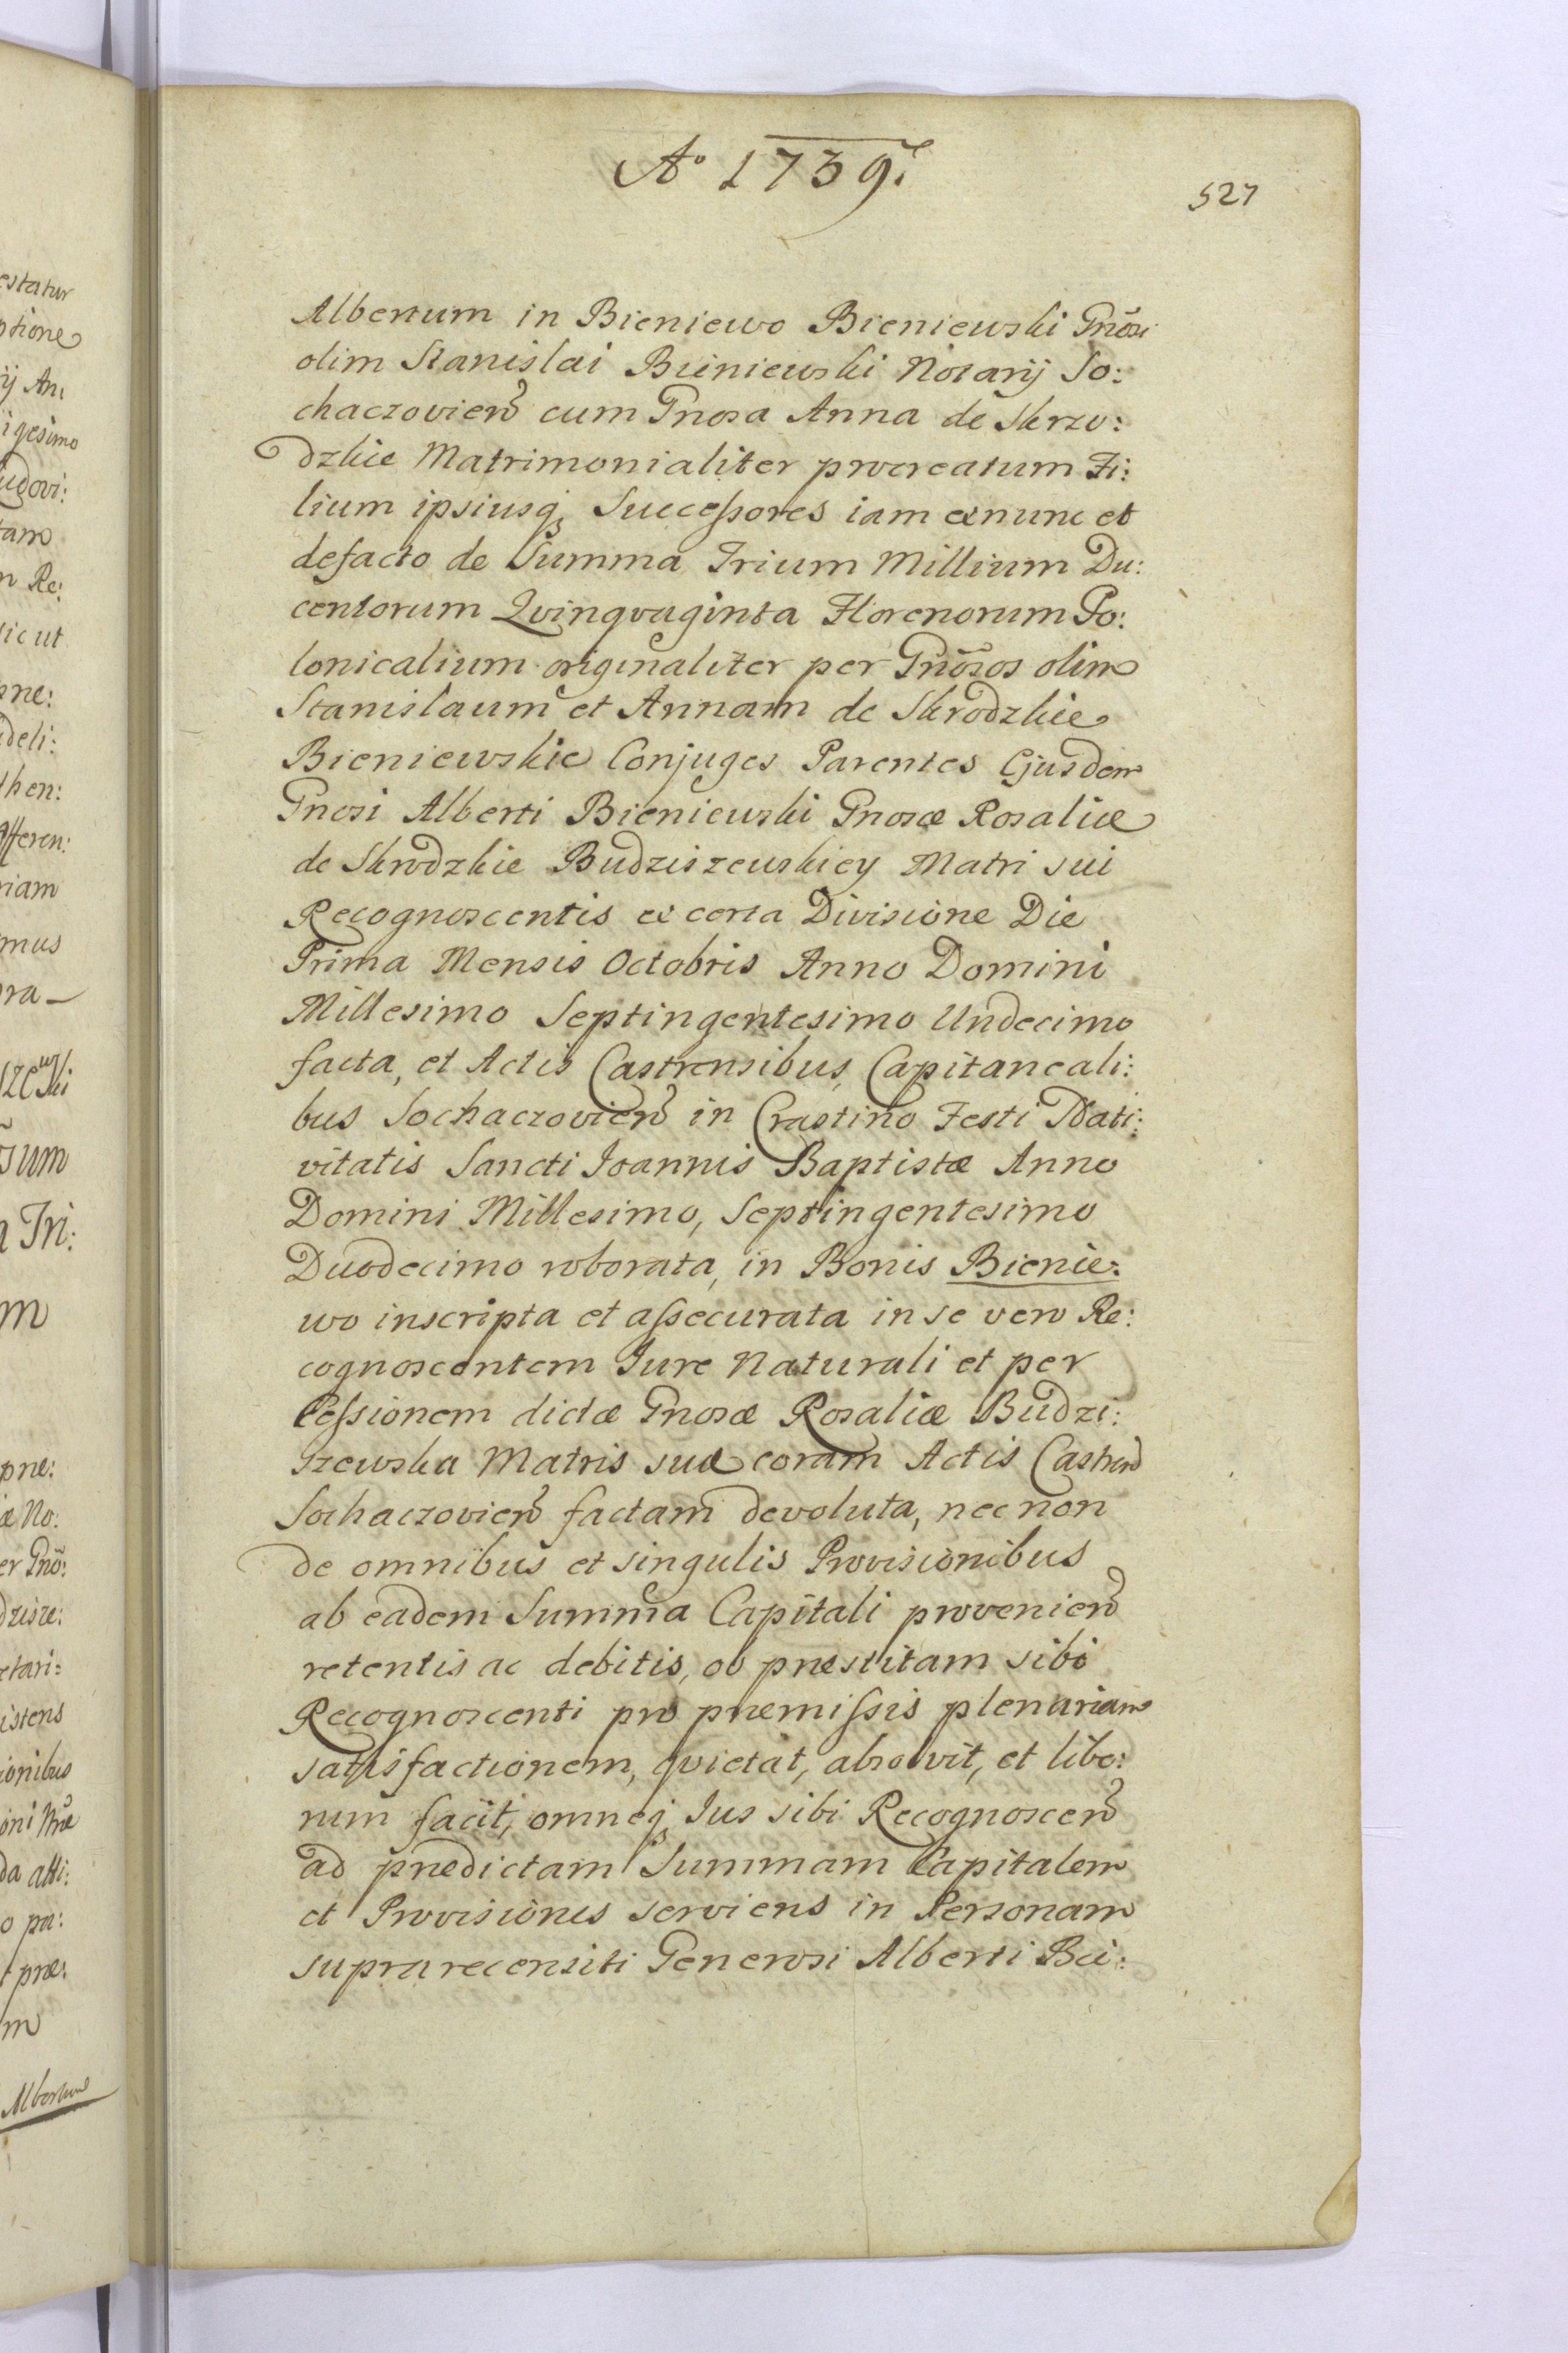 Aº 1739.
527
Albertum in Bieniewo Bieniewski Gnõsi
olim Stanislai Bieniewski Notarij So:
chaczovien̄ cum Gnosa Anna de Skrzo:
dzkie Matrimonialiter procreatum Fi:
lium ipsiusq̨ Successores iam exnunc et
defacto de Summa Trium Millium Du:
centorum Qvinqvaginta Florenorum Po:
lonicalium originaliter per Gnõsos olim
Stanislaum et Annam de Skrodzkie
Bieniewskie Conjuges Parentes Ejusdem
Gnosi Alberti Bieniewski Gnosæ Rosaliæ
de Skrodzkie Budziszewskiey Matri sui
Recognoscentis ex certa Divisione Die
Prima Mensis Octobris Anno Domini
Millesimo Septingentesimo Undecimo
facta, et Actis Castrensibus Capitaneali:
bus Sochaczovien̄ in Crastino Festi Nati:
vitatis Sancti Joannis Baptistæ Anno
Domini Millesimo, Septingentesimo
Duodecimo roborata, in Bonis Bienie:
wo inscripta et assecurata in se vero Re:
cognoscentem Jure Naturali et per
Cessionem dictæ Gnosæ Rosaliæ Budzi:
szewska Matris suæ coram Actis Castren̄
Sochaczovien̄ factam devoluta, nec non
de omnibus et singulis Provisionibus
ab eadem Summa Capitali provenien̄
retentis ac debitis, ob præstitam sibi
Recognoscenti pro præmissis plenariam
satisfactionem, qvietat, absolvit, et libe:
rum facit, omneq̨ Jus sibi Recognoscen̄
ad prædictam Summam Capitalem
et Provisiones serviens in Personam
suprarecensiti Generosi Alberti Bie:
estatur
ptione
ij An:
igesimo
udovi:
tam
n Re:
sicut
deli:
fferen:
riam
mus
ra
szewski
sum
a Tri:
m
æ No:
er Gnõ:
dzisze:
etari:
istens
ionibus
da atti:
o pa:
t præ:
m
Albertum